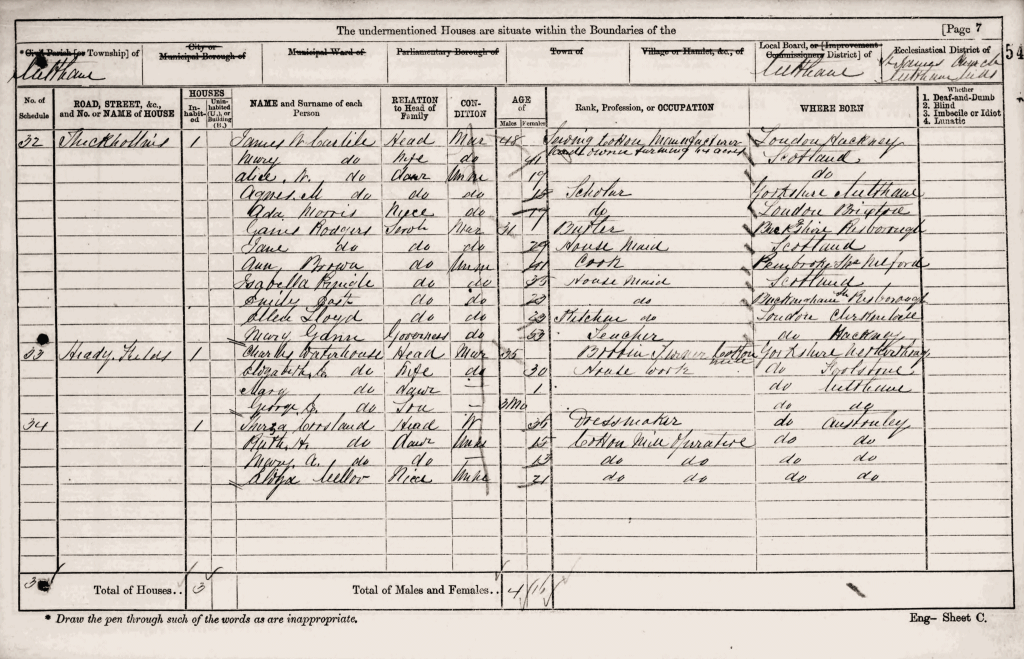 The undermentioned Houses are situate within the Boundaries of the [Page 7
54
*Civil Parish [or Township] of
City or Municipal Borough of
Municipal Ward of
Parliamentary Borough of
Town of
Village or Hamlet, &c., of
Local Board, or [Improvement Commissioners District] of
Ecclesiastical District of
Meltham
Meltham
St James Church
Meltham Mills
No. of Schedule
ROAD, STREET, &c., and No. or NAME of HOUSE
HOUSES
Inhabited
Uninhabited (U.), or Building (B.)
NAME and Surname of each Person
RELATION to Head of Family
CONDITION
AGE of
Males Females
Rank, Profession, or OCCUPATION
WHERE BORN
Whether
1. Deaf-and-Dumb
2. Blind
3. Imbecile or Idiot
4. Lunatic
32 Thickhollins 1 James W Carlile Head Mar 48 Sewing Cotton Manufacturer London Hackney
Landowner farming acres
Mary do Wife do 41 Scotland
Alice do Daur Unm 19 do
Agnes M do do do Scholar Yorkshire Meltham
Ada Morris Niece do 17 do London Brixton
James Rodgers Serv Mar 31 Butler Risborough
Jane do do do 29 House Maid Scotland
Ann Brown do Unm 41 Cook Pembroke Milford
Isabella do do 35 House Maid Scotland
Emily do do 23 do Buckingham Risborough
Ellen Lloyd do do 22 Kitchen do London Clerkenwell
Mary Governess do 53 Teacher do Hackney
33 Heady Fields 1 Charles Waterhouse Head Mar 35 Bobbin Turner Cotton Mill Yorkshire Netherthong
Elizabeth do Wife do 30 House Work do
Mary do Daur - 1 do Meltham
George do Son - 3 Mo do do
34 1 Head W 36 Dressmaker do Austonley
Ruth H. do Daur Unm 15 Cotton Mill Operative do do
Mary A. do do - 13 do do do do
Mellor Niece Unm 21 do do do do
3 Total of Houses.. 3 Total of Males and Females.. 4 16
* Draw the pen through such of the words as are inappropriate.
Eng- Sheet C.